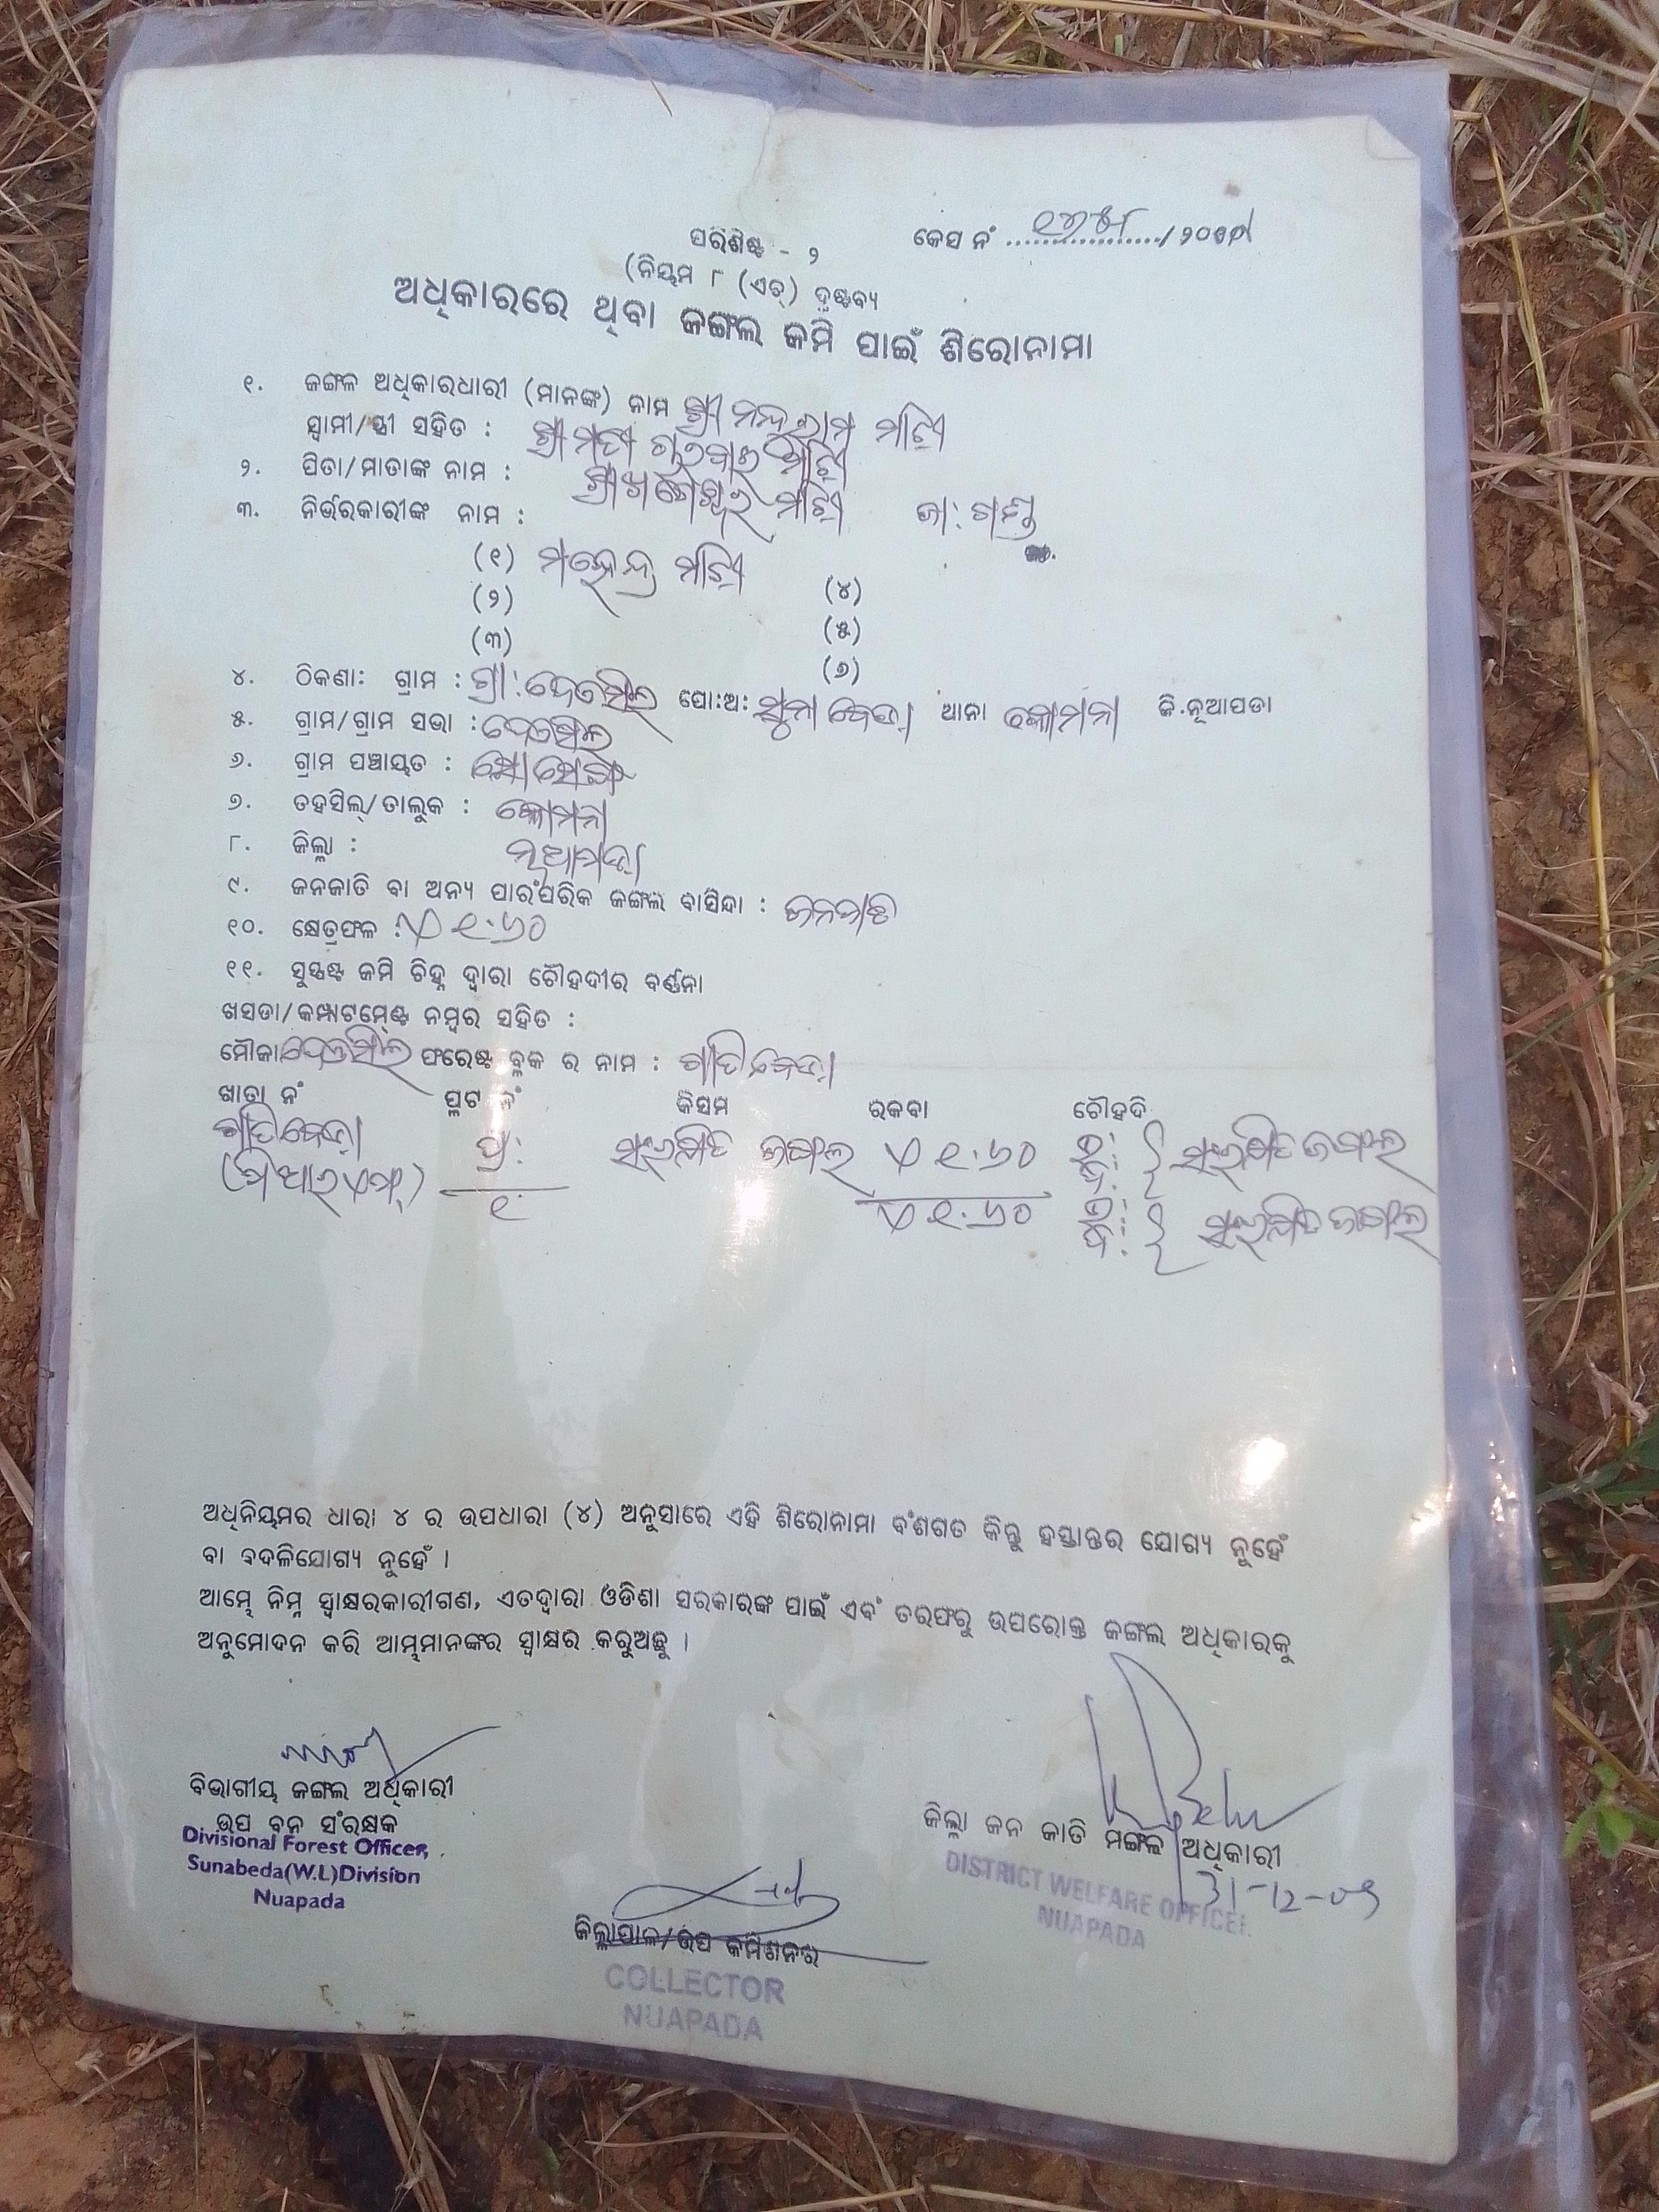 ପରିଶିଷ୍ଟ - ୨
କେସ ନଂ ................../୨୦୦୯
(ନିୟମ ୮ (ଏଚ୍) ଦ୍ରଷ୍ଟବ୍ୟ
ଅଧିକାରରେ ଥିବା ଜଙ୍ଗଲ ଜମି ପାଇଁ ଶିରୋନାମା
୧. ଜଙ୍ଗଳ ଅଧିକାରଧାରୀ (ମାନଙ୍କ) ନାମ ଶ୍ରୀ ନନ୍ଦୁରାମ ମାଝୀ
ସ୍ୱାମୀ/ସ୍ତ୍ରୀ ସହିତ : ଶ୍ରୀମତୀ ମାଝୀ
୨. ପିତା/ମାତାଙ୍କ ନାମ : ମାଝୀ
୩. ନିର୍ଭରକାରୀଙ୍କ ନାମ : ଜା: ଗଣ୍ଡ
(୧) ମହେନ୍ଦ୍ର ମାଝୀ (୪)
(୨) (୫)
(୩) (୬)
୪. ଠିକଣା: ଗ୍ରାମ : ଗ୍ରା: ପୋ:ଅ: ସୁନାବେଡ଼ା ଥାନା କୋମନା ଜି.ନୂଆପଡା
୫. ଗ୍ରାମ/ଗ୍ରାମ ସଭା :
୬. ଗ୍ରାମ ପଞ୍ଚାୟତ :
୭. ତହସିଲ୍/ତାଲୁକ : କୋମନା
୮. ଜିଲ୍ଲା : ନୂଆପଡ଼ା
୯. ଜନଜାତି ବା ଅନ୍ୟ ପାରଂପରିକ ଜଙ୍ଗଲ ବାସିନ୍ଦା : ଜନଜାତି
୧୦. କ୍ଷେତ୍ରଫଳ : ଏ ୧.୬୦
୧୧. ସୁସ୍ପଷ୍ଟ ଜମି ଚିହ୍ନ ଦ୍ୱାରା ଚୌହଦୀର ବର୍ଣ୍ଣନା
ଖସଡା/କମ୍ପାଟମେଣ୍ଟ ନମ୍ବର ସହିତ :
ମୌଜା ଫରେଷ୍ଟ ବ୍ଲକ ର ନାମ : ପାତିବେଡ଼ା
ଖାତା ନଂ ପ୍ଲଟ ନଂ କିସମ ରକବା ଚୌହଦି
ପାତିବେଡ଼ା ପ୍ର: ସଂରକ୍ଷିତ ଜଙ୍ଗଲ ଏ ୧.୬୦ ଉ: ସଂରକ୍ଷିତ ଜଙ୍ଗଲ
(ପିଆରଏଫ୍) ୧ ଏ ୧.୬୦ ଦ: ସଂରକ୍ଷିତ ଜଙ୍ଗଲ
ଅଧିନିୟମର ଧାରା ୪ ର ଉପଧାରା (୪) ଅନୁସାରେ ଏହି ଶିରୋନାମା ବଂଶଗତ କିନ୍ତୁ ହସ୍ତାନ୍ତର ଯୋଗ୍ୟ ନୁହେଁ
ବା ବଦଳିଯୋଗ୍ୟ ନୁହେଁ ।
ଆମ୍ଭେ ନିମ୍ନ ସ୍ୱାକ୍ଷରକାରୀଗଣ, ଏତଦ୍ୱାରା ଓଡିଶା ସରକାରଙ୍କ ପାଇଁ ଏବଂ ତରଫରୁ ଉପରୋକ୍ତ ଜଙ୍ଗଲ ଅଧିକାରକୁ
ଅନୁମୋଦନ କରି ଆମ୍ଭମାନଙ୍କର ସ୍ୱାକ୍ଷର କରୁଅଛୁ ।
ବିଭାଗୀୟ ଜଙ୍ଗଲ ଅଧିକାରୀ
ଉପ ବନ ସଂରକ୍ଷକ
Divisional Forest Officer,
Sunabeda(W.L)Division
Nuapada
ଜିଲ୍ଲା ଜନ ଜାତି ମଙ୍ଗଳ ଅଧିକାରୀ
31-12-09
DISTRICT WELFARE OFFICER
NUAPADA
ଜିଲ୍ଲାପାଳ/ଉପ କମିଶନର
COLLECTOR
NUAPADA